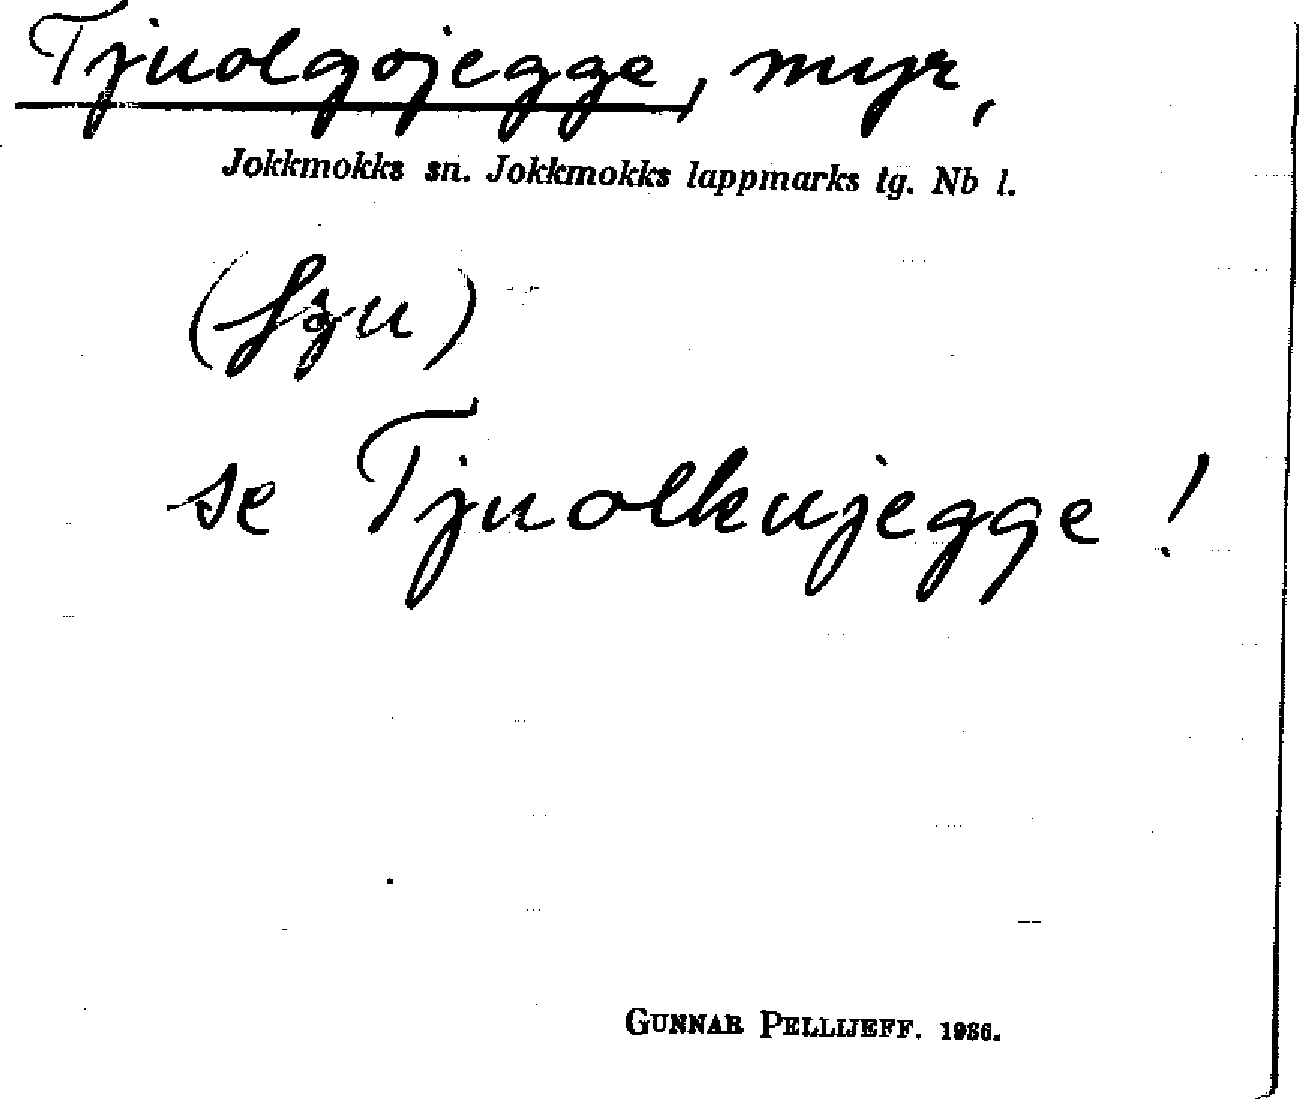 Tjuolgojegge, myr,
Jokkmokks sn. Jokkmokks lappmarks lg. Nb l.
se Tjuolkujegge!
GUNNAR PELLIJEFF. 1986.